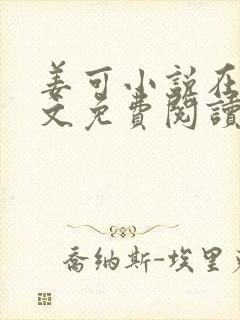 姜可小说在
文免費閱讀
喬纳斯-埃里克